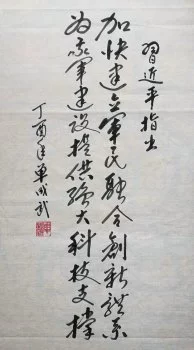 習近平指出
加快建立軍民融合創新體系
为我軍建设提供強大科技支撑
丁酉年單成武